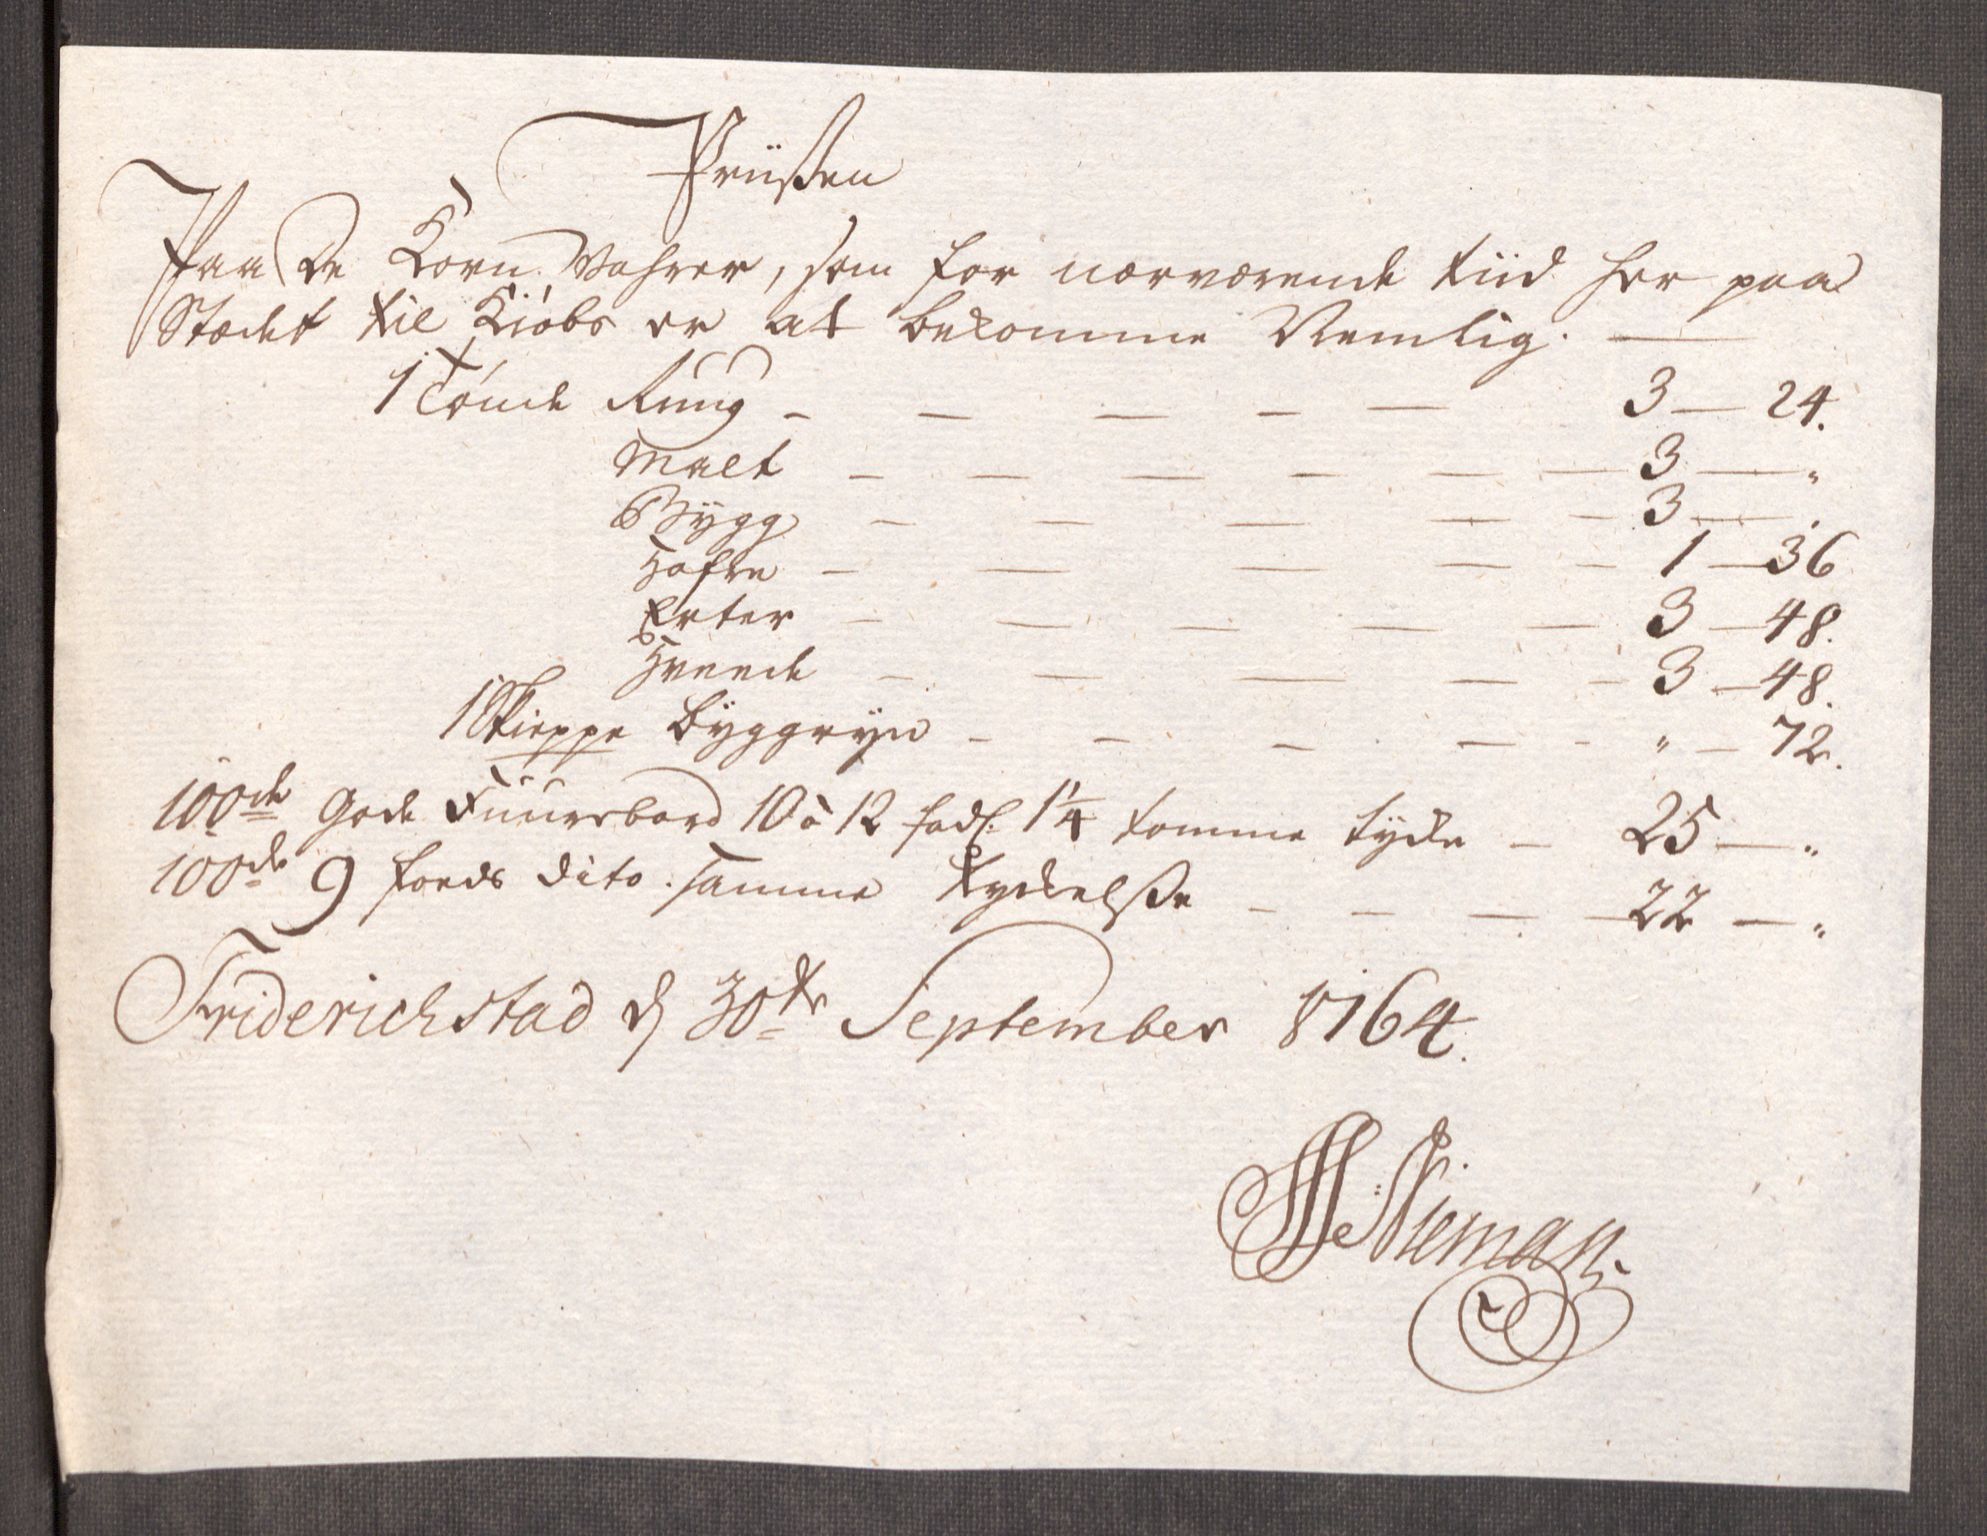 Priißen
Paa de Korn Vahrer, som for nærværende tiid her paa
Stædet til Kiöbs er at bekomme Nemlig. —
1 Tönde Rug — — — — — 3 — 24.
Malt — — — — — — 3 — "
Bÿgg — — — — — 3 — "
Hafre — — — — — 1 — 36
Erter — — — — — 3 — 48.
Hveede — — — — — 3 — 48.
1 Skieppe Bÿggrÿn — — — — — " — 72.
100de gode Fuurebord 10 à 12 fod. 1¼ tomme tyke — 25 — "
100de 9 foeds dito samme tyckelße — — — — 22 — "
Friderichstad d 30te September 1764.
Nieman